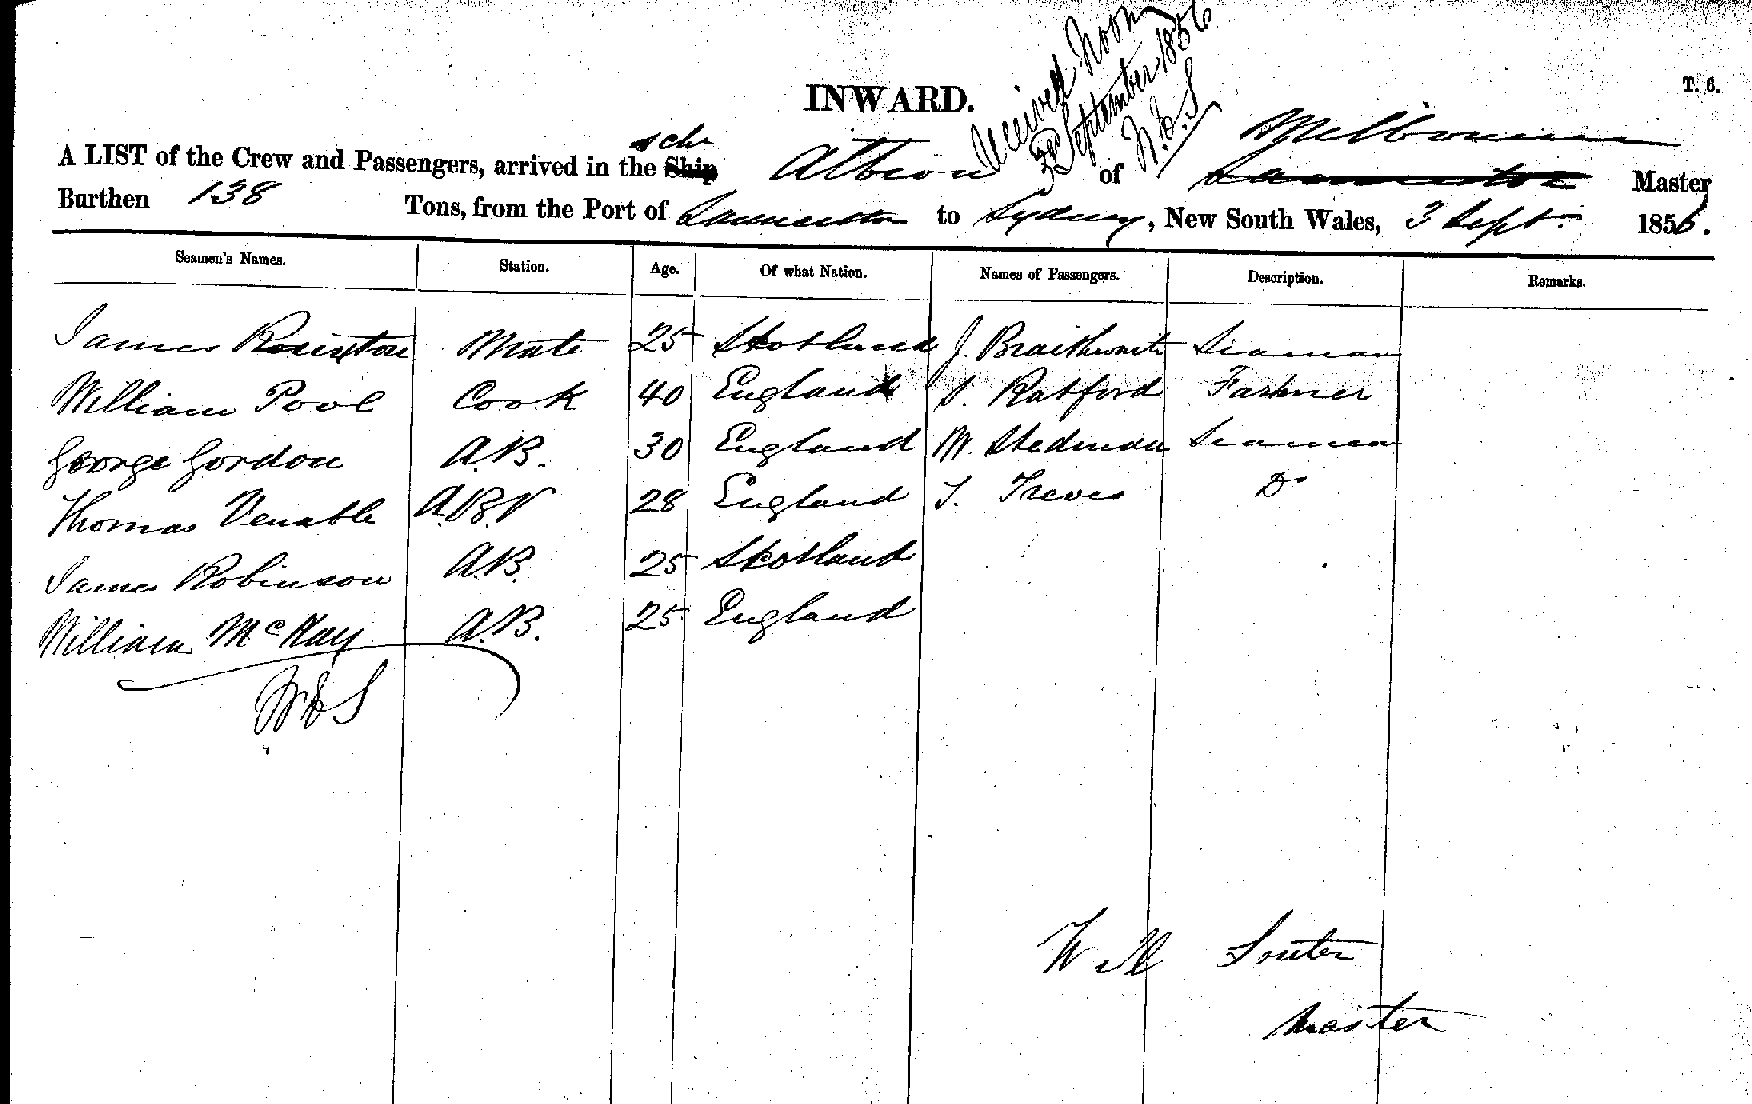 Received Noon
3rd September 1856
INWARD.
T. 6.
A LIST of the Crew and Passengers, arrived in the Ship schr Albion of Launceston Melbourne Master
Burthen 138 Tons, from the Port of Launceston to Sydney, New South Wales, 3 Sept. 1856.
Seamen's Names. Station. Age. Of what Nation. Names of Passengers. Description. Remarks.
James Mate 25 Skotland J. Braithwaite Seaman
William Pool Cook 40 England Ratford Farmer
George Gordon A.B. 30 England W. Stedman Seaman
Thomas Venable 28 England T. Treves Do
James Robinson A.B. 25 Skotland
William McKay A.B. 25 England
Will Souter
Master